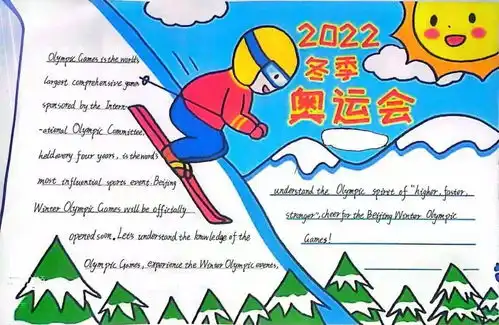 2022
冬季
奥运会
Olympic Games is the world's
largest comprehensive game
sponsored by the Intern-
-ational Olympic Committee,
held every four years, is the world's
most influential sports event. Beijing
Winter Olympic Games will be officially
opened soon. Let's understand the knowledge of the
Olympic Games, experience the Winter Olympic events,
understand the Olympic spirit of "higher, faster,
stronger", cheer for the Beijing Winter Olympic
Games!